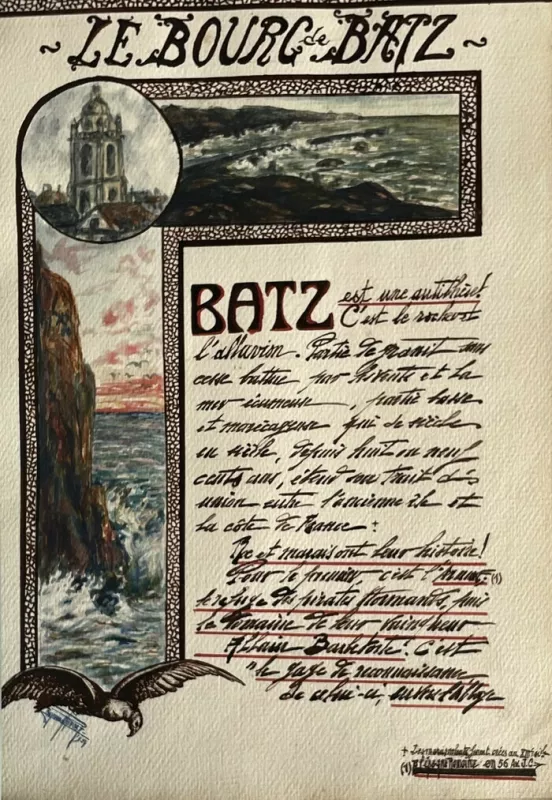 ~ LE BOURG de BATZ ~
BATZ est une antithèse!
C'est le roc et
l'alluvion. Partie de granit sans
cesse battue par les vents et la
mer écumeuse, partie basse
et marécageuse qui de siècle
en siècle, depuis huit ou neuf
cents ans, étend son trait d'
union entre l'ancienne île et
la côte de France:
Roc et marais ont leur histoire!
Pour le premier, c'est (1)
le refuge des pirates Normands, puis
le domaine de leur vainqueur
Allain Barbetorte! C'est
le gage de reconnaissance
de celui-ci, envers l'Abbaye
+ Les marais furent créés au siècle
(1) en 56 Av J.C.